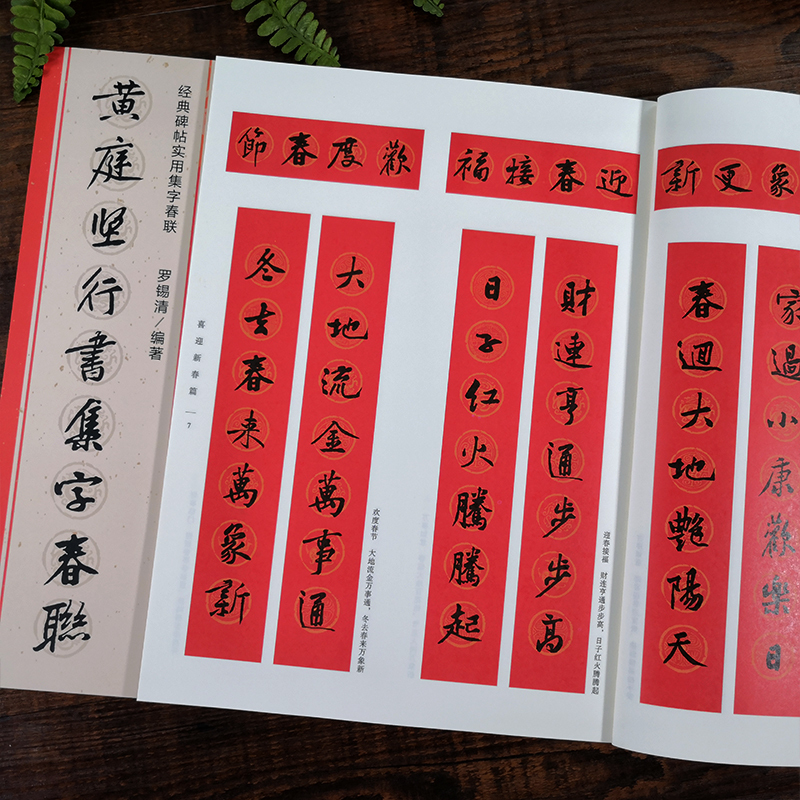 经典碑帖实用集字春联
罗锡清/编著
黄庭坚行書集字春聯
歡度春節
大地流金萬事通
冬去春来萬象新
欢度春节 大地流金万事通,冬去春来万象新
喜迎新春篇 — 7
迎春接福
財連亨通步步高
日子红火騰騰起
迎春接福 财连亨通步步高,日子红火腾腾起
象更新
家過小康歡樂日
春迴大地艷陽天